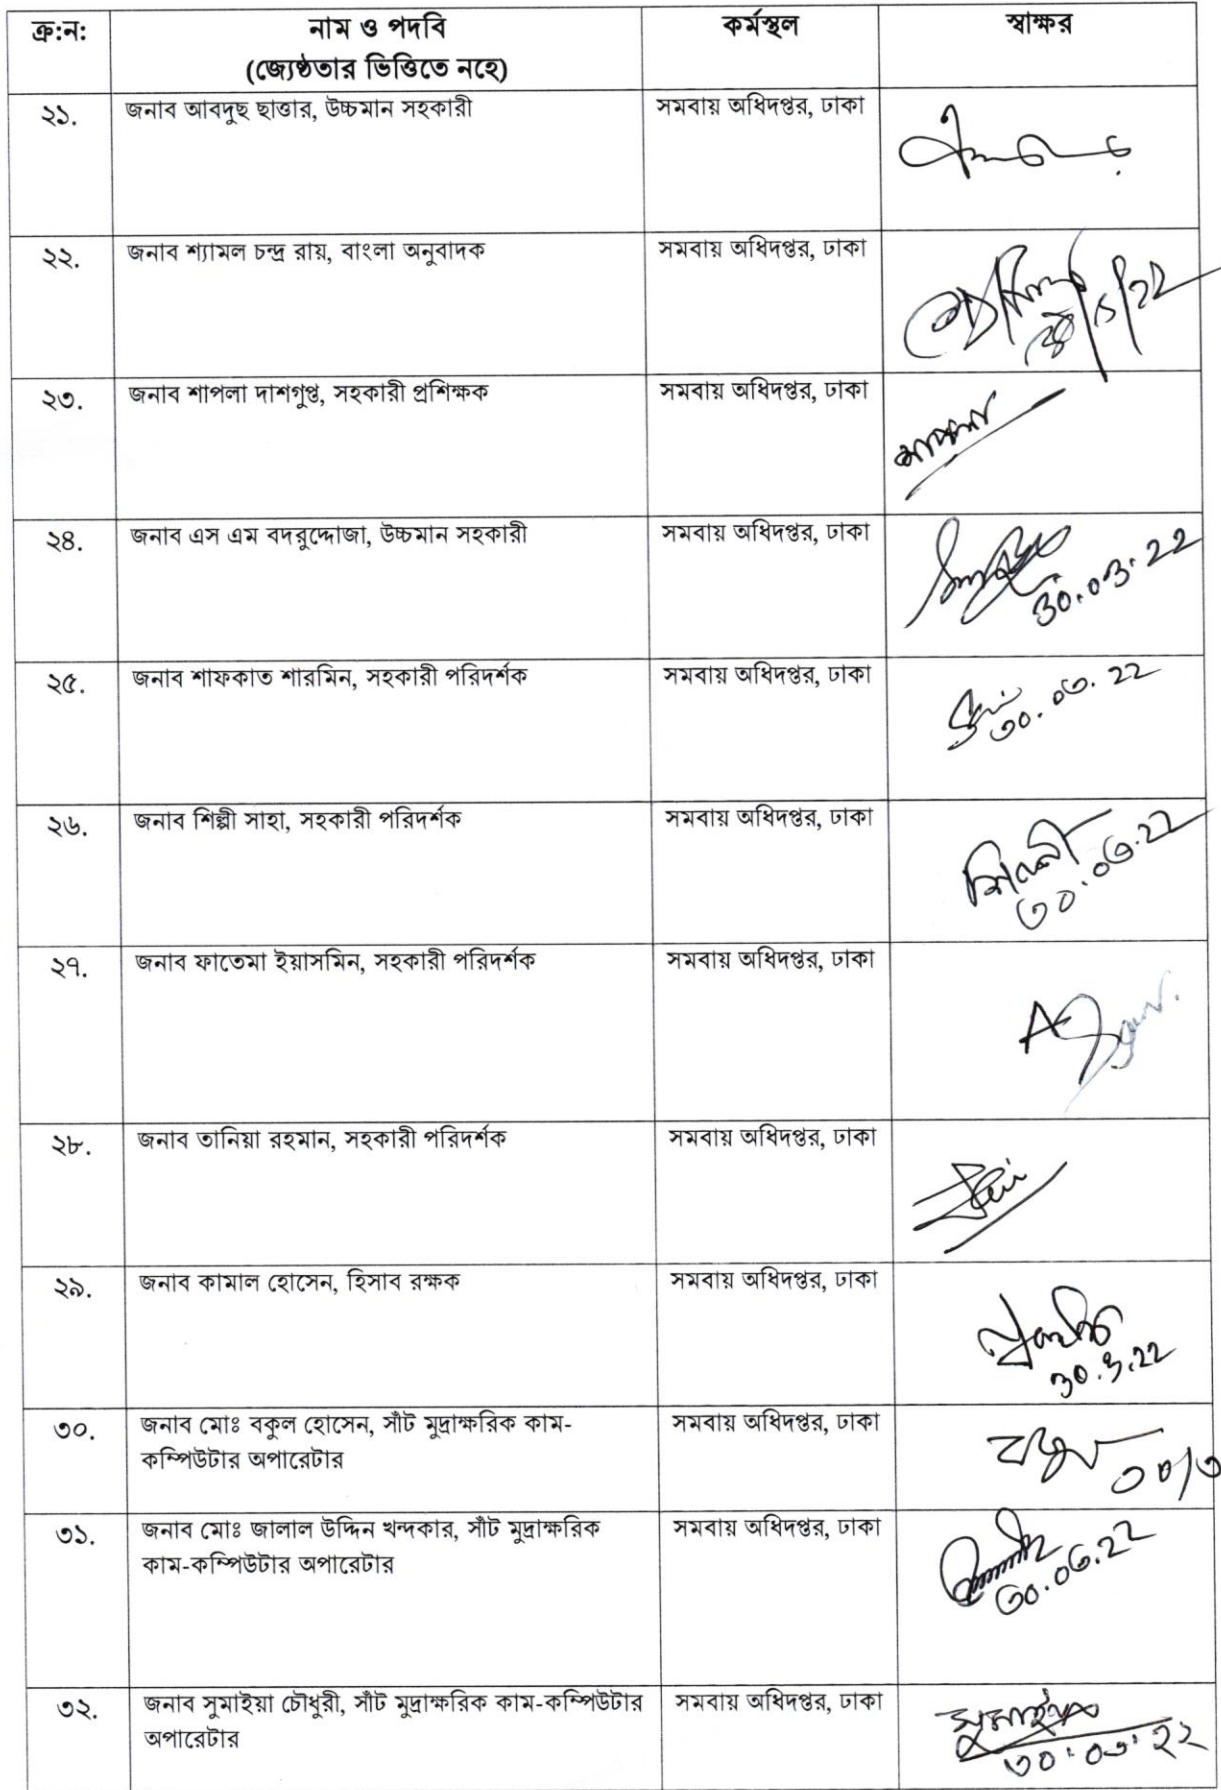 ক্র:ন: নাম ও পদবি কর্মস্থল স্বাক্ষর
(জ্যেষ্ঠতার ভিত্তিতে নহে)
২১. জনাব আবদুছ ছাত্তার, উচ্চমান সহকারী সমবায় অধিদপ্তর, ঢাকা
২২. জনাব শ্যামল চন্দ্র রায়, বাংলা অনুবাদক সমবায় অধিদপ্তর, ঢাকা
২৩. জনাব শাপলা দাশগুপ্ত, সহকারী প্রশিক্ষক সমবায় অধিদপ্তর, ঢাকা
শাপলা
২৪. জনাব এস এম বদরুদ্দোজা, উচ্চমান সহকারী সমবায় অধিদপ্তর, ঢাকা
30.03.22
২৫. জনাব শাফকাত শারমিন, সহকারী পরিদর্শক সমবায় অধিদপ্তর, ঢাকা
৩০.০৩.22
২৬. জনাব শিল্পী সাহা, সহকারী পরিদর্শক সমবায় অধিদপ্তর, ঢাকা
শিল্পী
৩০.০৩.22
২৭. জনাব ফাতেমা ইয়াসমিন, সহকারী পরিদর্শক সমবায় অধিদপ্তর, ঢাকা
২৮. জনাব তানিয়া রহমান, সহকারী পরিদর্শক সমবায় অধিদপ্তর, ঢাকা
২৯. জনাব কামাল হোসেন, হিসাব রক্ষক সমবায় অধিদপ্তর, ঢাকা
30.3.22
৩০. জনাব মোঃ বকুল হোসেন, সাঁট মুদ্রাক্ষরিক কাম- সমবায় অধিদপ্তর, ঢাকা
কম্পিউটার অপারেটার
বকুল
৩১. জনাব মোঃ জালাল উদ্দিন খন্দকার, সাঁট মুদ্রাক্ষরিক সমবায় অধিদপ্তর, ঢাকা
কাম-কম্পিউটার অপারেটার
৩০.০৩.22
৩২. জনাব সুমাইয়া চৌধুরী, সাঁট মুদ্রাক্ষরিক কাম-কম্পিউটার সমবায় অধিদপ্তর, ঢাকা
অপারেটার
সুমাইয়া
৩০.০৩.২২